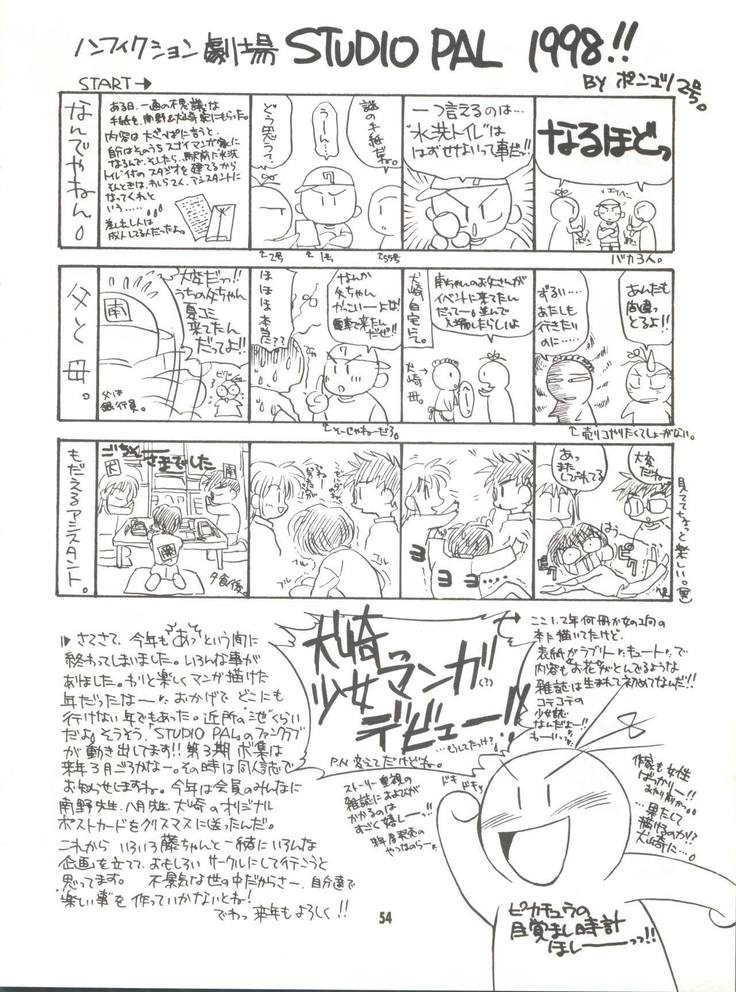 ノンフィクション劇場 STUDIO PAL 1998!!
BY ポンコツ2号。
START→
なんでやねん。
ある日、一通の不思議な
手紙を南野&犬崎宛にもらった。
内容は大ざっぱに言うと、
自分はそのうちスゴイマンガ家に
なるんで、そしたら、駅前に水洗
トイレ付のスタジオを建てるから
そんときは、わしらごく、アシスタントに
なってくれと
いう……
差出し人は
成人してるんだったよ。
謎の手紙だね。
うーん…
どう思うって、
←2号
←1号
←255号
一つ言えるのは…
"水洗トイレ"は
はずせないって事だ!!
なるほどっ
バカ3人。
父と母。
大変だっ!!
うちの父ちゃん
夏コミ
来てたん
だってよ!!
南
父は
銀行員。
なんか
父ちゃん
かっこいーよな!
電車で来たん
だぜ!!
ほほほ本当に??
←そーじゃねーだろ。
犬崎自宅にて。
南ちゃんのお父さんが
イベントに来てたん
だってー。並んで
入場したらしいよ
犬崎母。
ずるい…
あたしも
行きたい
のに……
あんたも
間違っ
とるよ!!
←売り子やりたくてしょーがない。
もだえるアシスタント。
ごちそーさまでした
犬
南
夕食後。
ブル
ブル
ヨ
ヨ
あっ
また
しびれてる
大変
だね
はう
ピピ
見ててちょっと楽しい。(男)
▷さてさて、今年もあっという間に
終わってしまいました。いろんな事が
ありました。わりと楽しくマンガ描けた
年だったなー。おかげでどこにも
行けない年でもあった。近所の池ぐらい
だよ。そうそう、STUDIO PALのファンクラブ
が動き出してます!!第3期ボ集は
来年3月ごろかなー。その時は同人誌で
お知らせしますね。今年は会員のみんなに
南野先生、八月先生、犬崎のオリジナル
ポストカードをクリスマスに送ったんだ。
これからいろいろ藤ちゃんと一緒にいろんな
企画を立てて、おもしろいサークルにして行こうと
思ってます。不景気な世の中だからさー、自分達で
楽しい事を作っていかないとね!
でわっ来年もよろしく!!
犬崎っ
少女マンガ(?)
デビュー!!
…もうしてたっけ?
P.N.変えてだけどね。
ストーリー重視の
雑誌におよびが
かかるのは
すごく嬉しー!!
ドキドキッ
→ここ1、2年何冊か女の子向の
本に描いてたけど、
表紙がラブリー、キュートで
内容もお花がとんでるような
雑誌は生まれて初めてなんだ!!
コテコテの
少女誌
なんだよっ!
わーいっ
作家も女性
ばっかりー!!
…果たして
描けるのか!?
犬崎に…。
ピカチュウの
目覚まし時計
ほしーーっっ!!
54